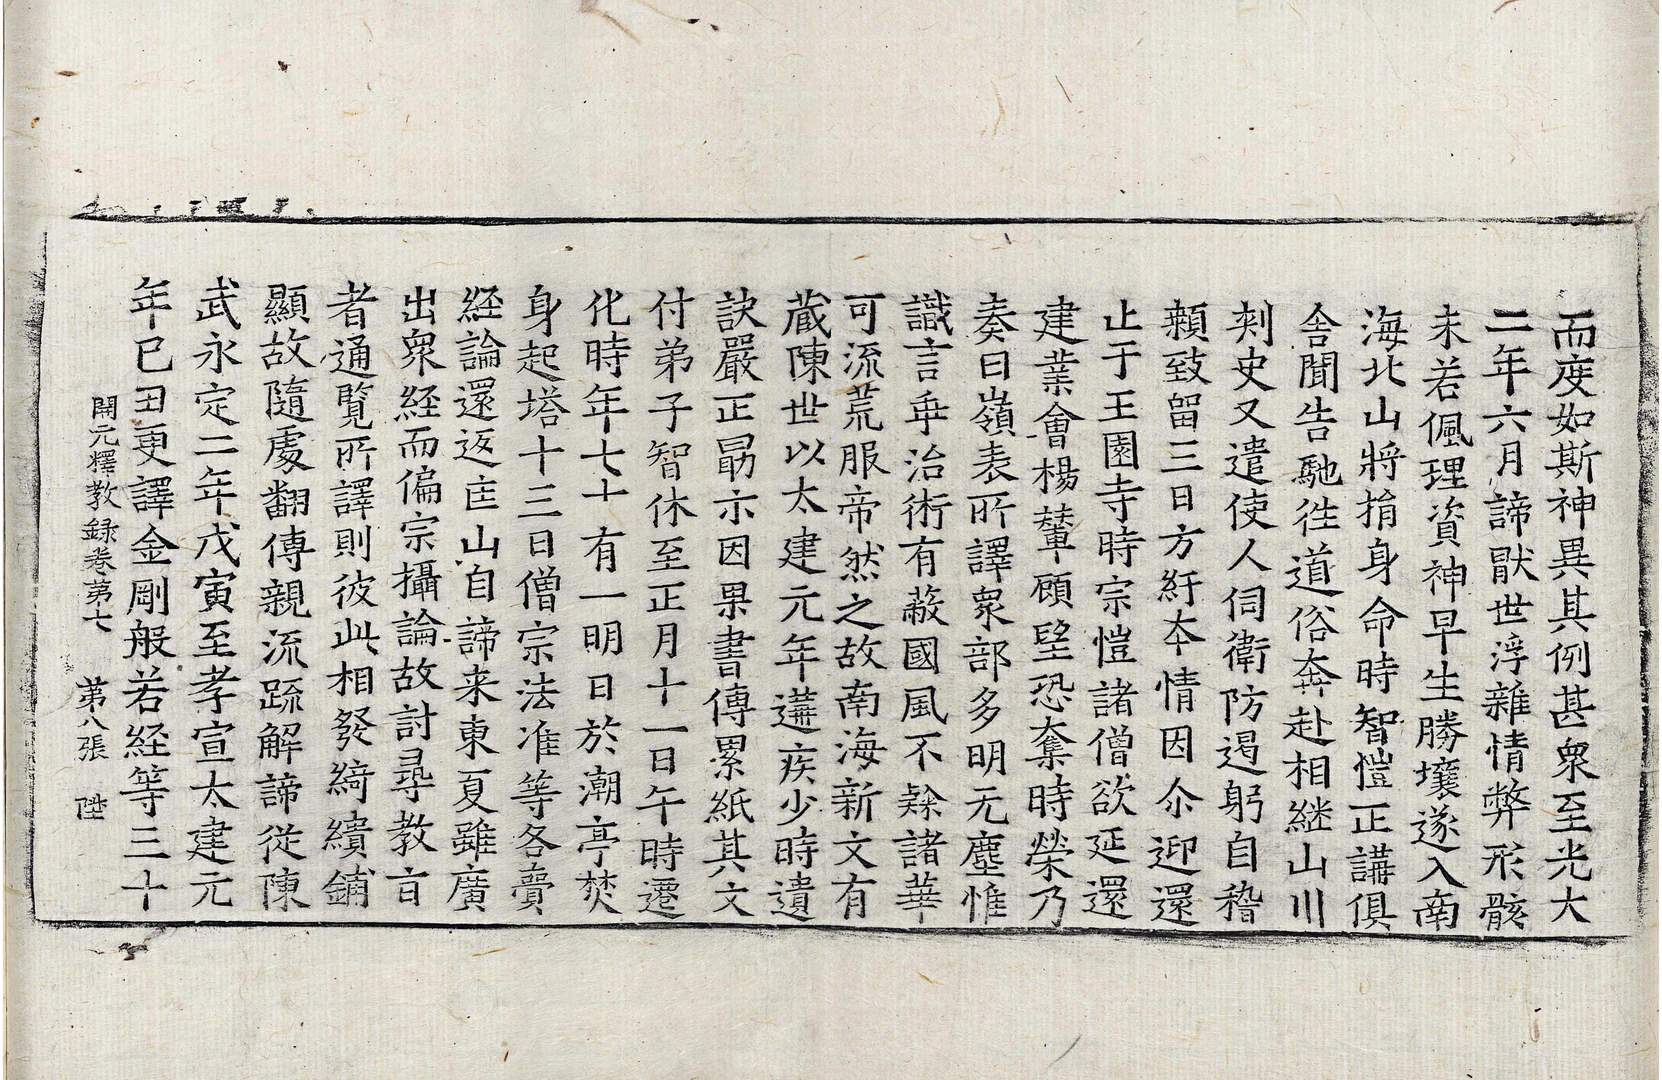 而度如斯神異其例甚衆至光大
二年六月諦猒世浮雜情弊形骸
未若佩理資神早生勝壤遂入南
海北山將捐身命時智愷正講俱
舍聞告馳往道俗奔赴相継山川
刾史又遣使人伺衛防遏躬自稽
顙致留三日方紆夲情因尒迎還
止于王園寺時宗愷諸僧欲延還
建業會楊輦顧望恐奪時榮乃
奏曰嶺表所譯衆部多明无塵惟
識言乖治術有蔽國風不𨽻諸華
可流荒服帝然之故南海新文有
蔵陳世以太建元年遘疾少時遺
訣嚴正勗示因果書傳累紙其文
付弟子智休至正月十一日午時遷
化時年七十有一明日於潮亭焚
身起塔十三日僧宗法准等各賷
経論還返匡山自諦来東夏雖廣
出衆経而偏宗攝論故討尋教旨
者通覽所譯則彼此相發綺繢鋪
顯故隨處翻傳親流疏解諦從陳
武永定二年戊寅至孝宣太建元
年巳丑更譯金剛般若経等三十
開元釋教錄卷第七 第八張 陞